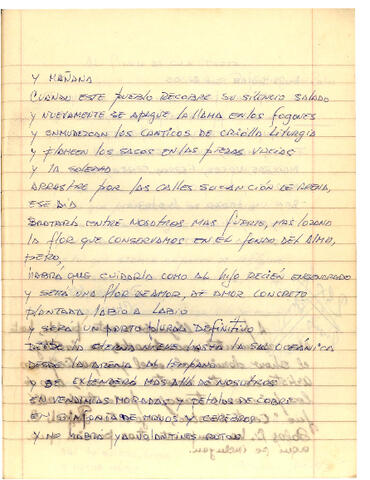 Y MAÑANA
CUANDO ESTE PUEBLO RECOBRE SU SILENCIO SALADO
Y NUEVAMENTE SE APAGUE LA LLAMA EN LOS FOGONES
Y ENMUDEZCAN LOS CANTICOS DE CRIOLLA LITURGIA
Y FLAMEEN LOS SACOS EN LAS PIEZAS VACIAS
Y LA SOLEDAD
ARRASTRE POR LAS CALLES SU CANCIÓN DE ARENA,
ESE DIA
BROTARÁ ENTRE NOSOTROS MAS FUERTE, MAS LOZANA
LA FLOR QUE CONSERVAMOS EN EL FONDO DEL ALMA,
PERO,
HABRÁ QUE CUIDARLA COMO AL HIJO RECIÉN ENGENDRADO
Y SERÁ UNA FLOR DE AMOR, DE AMOR CONCRETO
PLANTADA LABIO A LABIO
Y SERÁ UN PARTO PLURAL DEFINITIVO
DESDE LA NIEVE HASTA LA SAL OCEÁNICA
DESDE LA ARENA AL TEMPANO
Y SE EXTENDERÁ MAS ALLÁ DE NOSOTROS
EN VENDIMIAS MORADAS Y PÉTALOS DE COBRE
EN SINFONÍA DE MANOS Y CEREBROS
Y NO HABRÁ YA VOLANTINES ROTOS